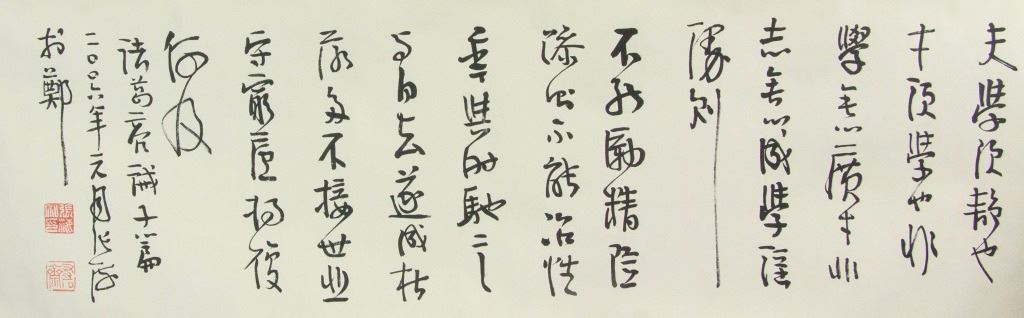 夫學須静也
才須學也非
學無以廣才非
志無以成學淫
慢則
不能勵精险
躁則不能冶性
年與時馳意
与日去遂成枯
落多不接世悲
守窮廬将復
何及
諸葛亮誡子篇
二〇〇六年元月张
於鄭